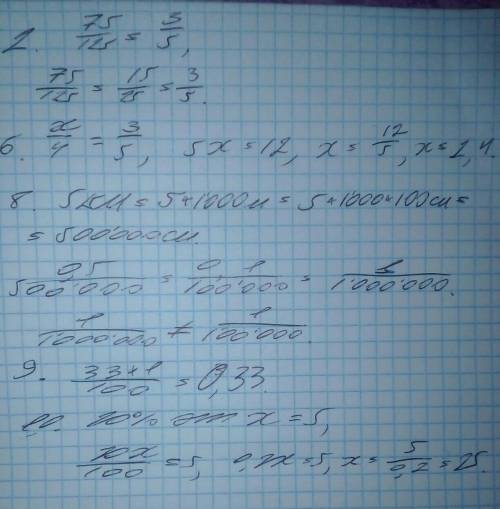 2. 75/125 = 3/5,
75/125 = 15/25 = 3/5.
6. x/4 = 3/5, 5x = 12, x = 12/5, x = 2,4.
8. 5 км = 5*1000 м = 5*1000*100 см =
= 500'000 см.
0,5/500'000 = 0,1/100'000 = 1/1'000'000.
1/1000'000 ≠ 1/100'000.
9. 33*1/100 = 0,33.
10. 20% от x = 5,
20x/100 = 5, 0,2x = 5, x = 5/0,2 = 25.